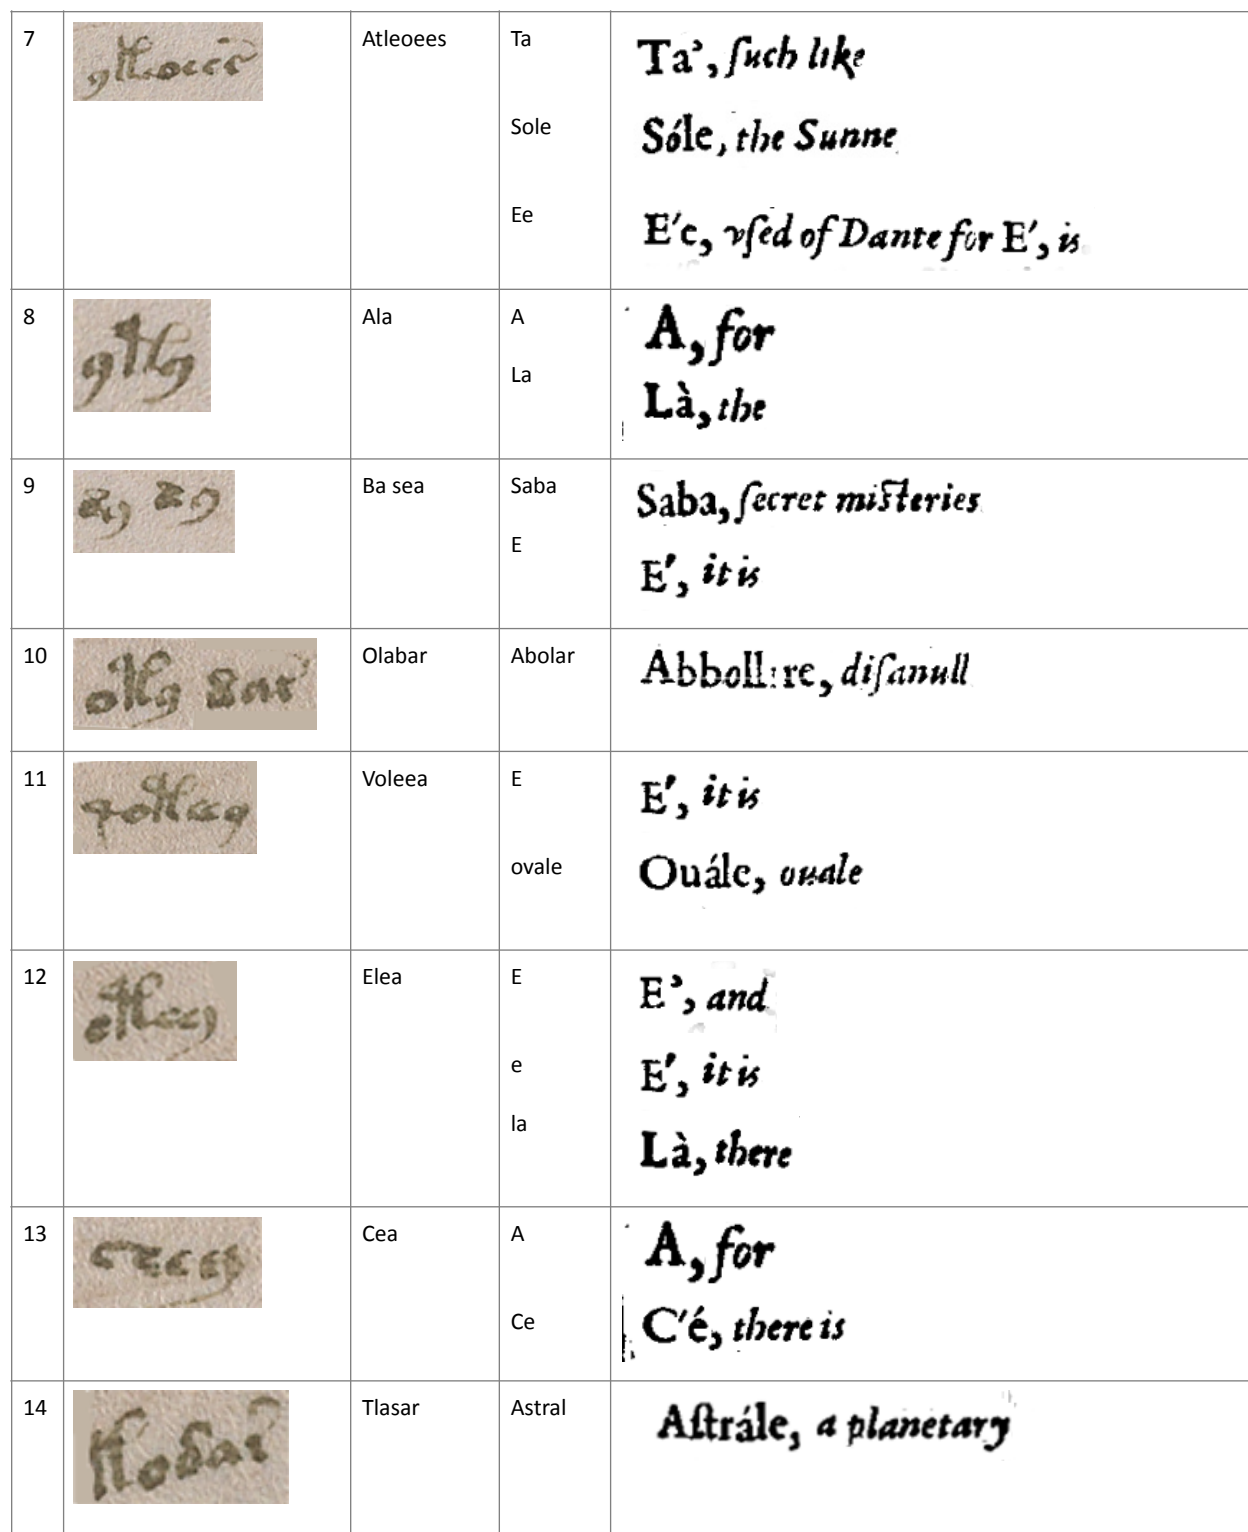 7 Atleoees Ta Ta', ſuch like
Sole Sóle, the Sunne
Ee E'e, vſed of Dante for E', is
8 Ala A A, for
La Là, the
9 Ba sea Saba Saba, ſecret miſteries
E E', it is
10 Olabar Abolar diſanull
11 Voleea E E', it is
ovale Ouále, ouale
12 Elea E E', and
e E', it is
la Là, there
13 Cea A A, for
Ce C'é, there is
14 Tlasar Astral Aſtrále, a planetary